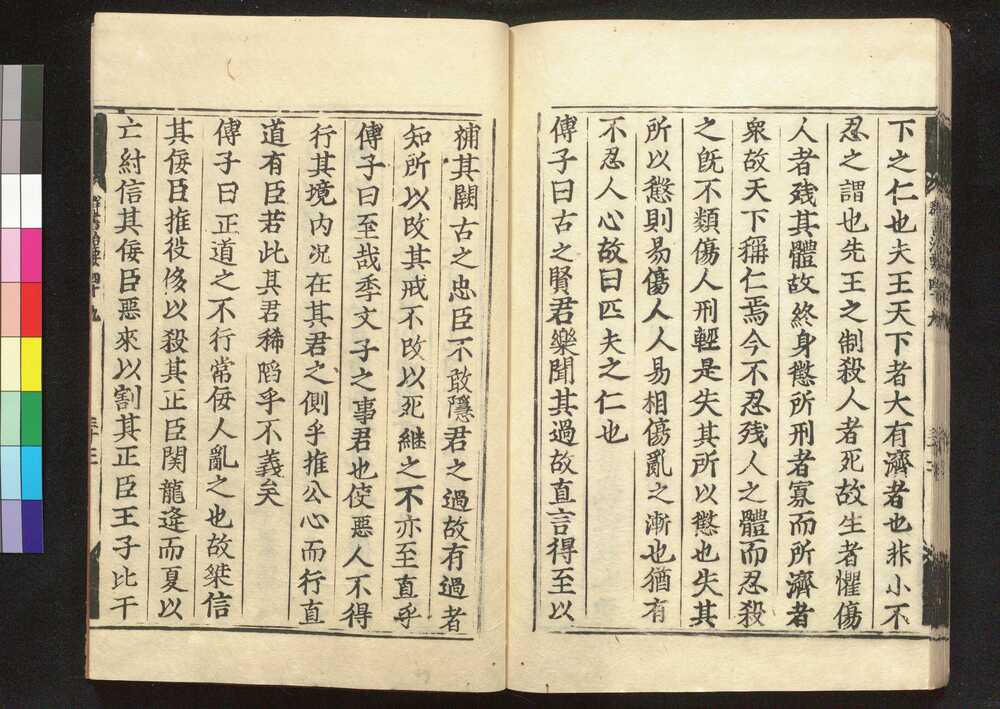 下之仁也夫王天下者大有濟者也非小不
忍之謂也先王之制殺人者死故生者懼傷
人者残其體故終身懲所刑者寡而所濟者
衆故天下稱仁焉今不忍残人之體而忍殺
之既不類傷人刑輕是失其所以懲也失其
所以懲則易傷人人易相傷亂之漸也猶有
不忍人心故曰匹夫之仁也
傅子曰古之賢君樂聞其過故直言得至以
補其闕古之忠臣不敢隱君之過故有過者
知所以改其戒不改以死継之不亦至直乎
傅子曰至哉季文子之事君也使惡人不得
行其境内况在其君之側乎推公心而行直
道有臣若此其君稀䧟乎不義矣
傅子曰正道之不行常佞人亂之也故桀信
其佞臣推役侈以殺其正臣関龍逄而夏以
亡紂信其佞臣惡來以割其正臣王子比干
群書治要四十九
三十三